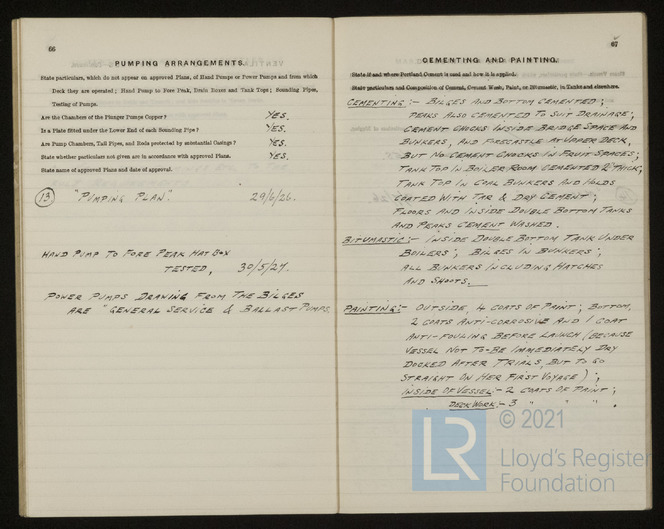 66
PUMPING ARRANGEMENTS.
State particulars, which do not appear on approved Plans, of Hand Pumps or Power Pumps and from which
Deck they are operated; Hand Pump to Fore Peak, Drain Boxes and Tank Tops; Sounding Pipes,
Testing of Pumps.
Are the Chambers of the Plunger Pumps Copper? YES.
Is a Plate fitted under the Lower End of each Sounding Pipe? YES.
Are Pump Chambers, Tail Pipes, and Rods protected by substantial Casings? YES.
State whether particulars not given are in accordance with approved Plans. YES.
State name of approved Plans and date of approval.
13 "PUMPING PLAN". 29/6/26.
HAND PUMP TO FORE PEAK HAT BOX
TESTED, 30/5/27.
POWER PUMPS DRAWING FROM THE BILGES
ARE "GENERAL SERVICE & BALLAST PUMPS.
67
CEMENTING AND PAINTING.
State if and where Portland Cement is used and how it is applied.
State particulars and Composition of Cement, Cement Wash, Paint, or Bitumastic, in Tanks and elsewhere.
CEMENTING:- BILGES AND BOTTOM CEMENTED;
PEAKS ALSO CEMENTED TO SUIT DRAINAGE;
CEMENT CHOCKS INSIDE BRIDGE SPACE AND
BUNKERS, AND FORECASTLE AT UPPER DECK,
BUT NO CEMENT CHOCKS IN FRUIT SPACES;
TANK TOP IN BOILER ROOM CEMENTED 2" THICK;
TANK TOP IN COAL BUNKERS AND HOLDS
COATED WITH TAR & DRY CEMENT;
FLOORS AND INSIDE DOUBLE BOTTOM TANKS
AND PEAKS CEMENT WASHED.
BITUMASTIC:- INSIDE DOUBLE BOTTOM TANK UNDER
BOILERS; BILGES IN BUNKERS;
ALL BUNKERS INCLUDING HATCHES
AND SHOOTS.
PAINTING:- OUTSIDE, 4 COATS OF PAINT; BOTTOM,
2 COATS ANTI-CORROSIVE AND 1 COAT
ANTI-FOULING BEFORE LAUNCH (BECAUSE
VESSEL NOT TO-BE IMMEDIATELY DRY
DOCKED AFTER TRIALS, BUT TO GO
STRAIGHT ON HER FIRST VOYAGE);
INSIDE OF VESSEL:- 2 COATS OF PAINT;
DECK WORK:- 3 " " " .
LR
© 2021
Lloyd's Register
Foundation